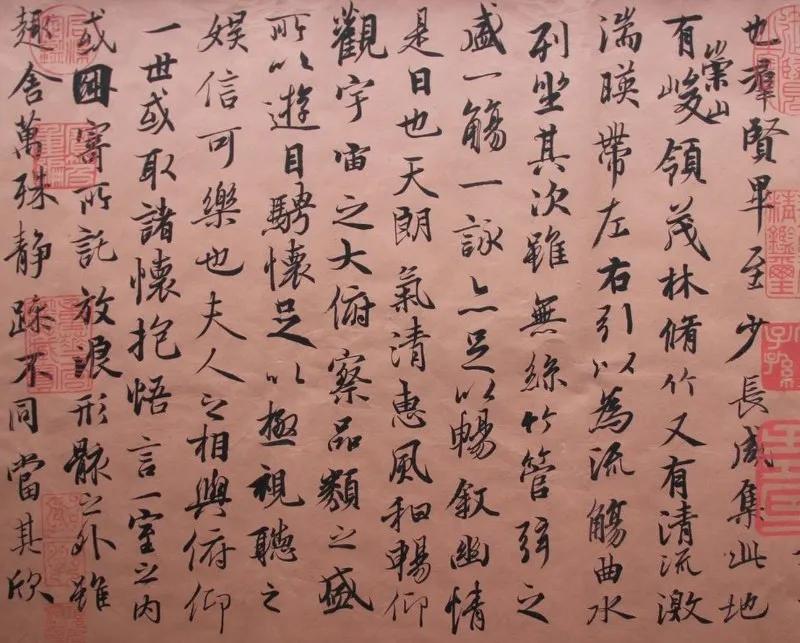 也羣賢畢至少長咸集此地
有崇山峻領茂林脩竹又有清流激
湍暎帶左右引以為流觴曲水
列坐其次雖無絲竹管弦之
盛一觴一詠亦足以暢敘幽情
是日也天朗氣清惠風和暢仰
觀宇宙之大俯察品類之盛
所以遊目騁懷足以極視聽之
娛信可樂也夫人之相與俯仰
一世或取諸懷抱悟言一室之內
或因寄所託放浪形骸之外雖
趣舍萬殊靜躁不同當其欣